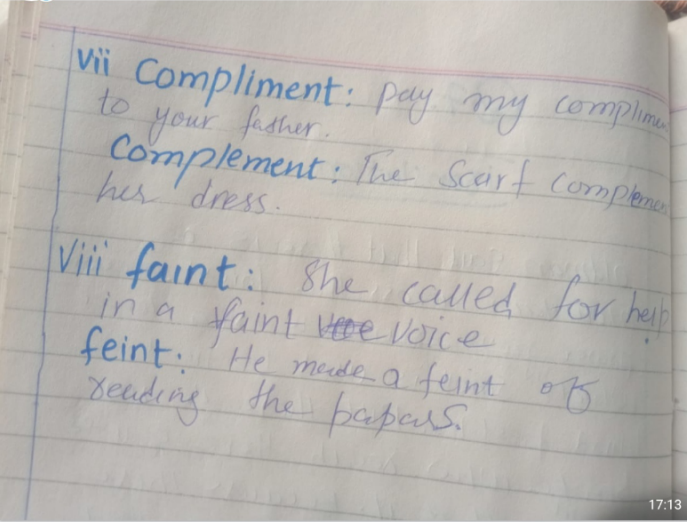 vii Compliment: Pay my complime
to your father.
Complement: The Scarf complemen
her dress.
Viii faint: She called for help
in a faint voice
feint: He made a feint of
reading the papars.
17:13